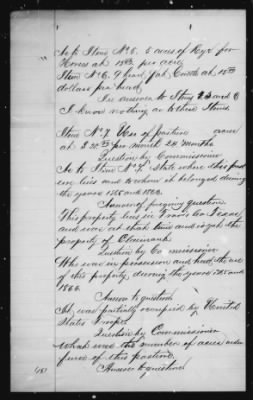 As to Item No 5. 5 acres of Rye for
Horses at 15.00 per acre
Item No 6. 9 head Jack Cattle at 15.00
dollars per head
In answer to Item 5 and 6
I know nothing as to these Items.
Item No 7. Use of pasture acres
at $20.00 per month 24 months
Question by Commissioner
As to Item No 7. State where this pasture
lies and to whom it belonged during
the years 1865 and 1866.
Answer to foregoing question
This property lies in Travis Co Texas
and was at that time and is yet the
property of
Question by Commissioner
Who was in possession and had the use
of this property, during the years 1865 and
1866.
Answer to question
It was partially occupied by United
States Troops
Question by Commissioner
What was the number of acres under
fence of this pasture.
Answer to question